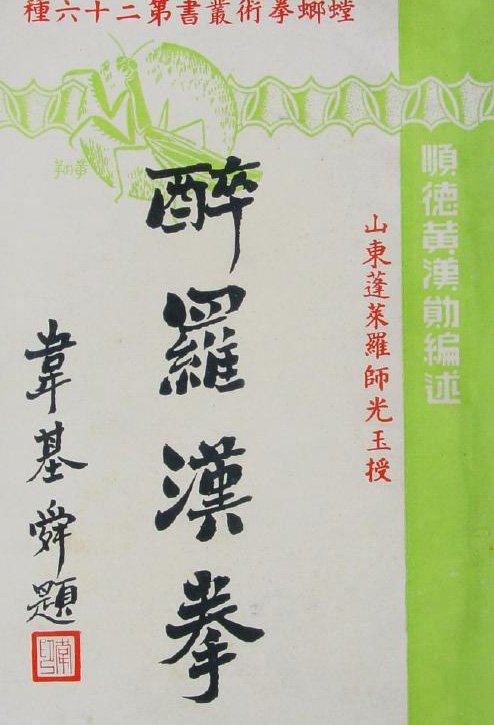 螳螂拳術叢書第二十六種
順德黃漢勛編述
山東蓬萊羅師光玉授
醉羅漢拳
韋基舜題